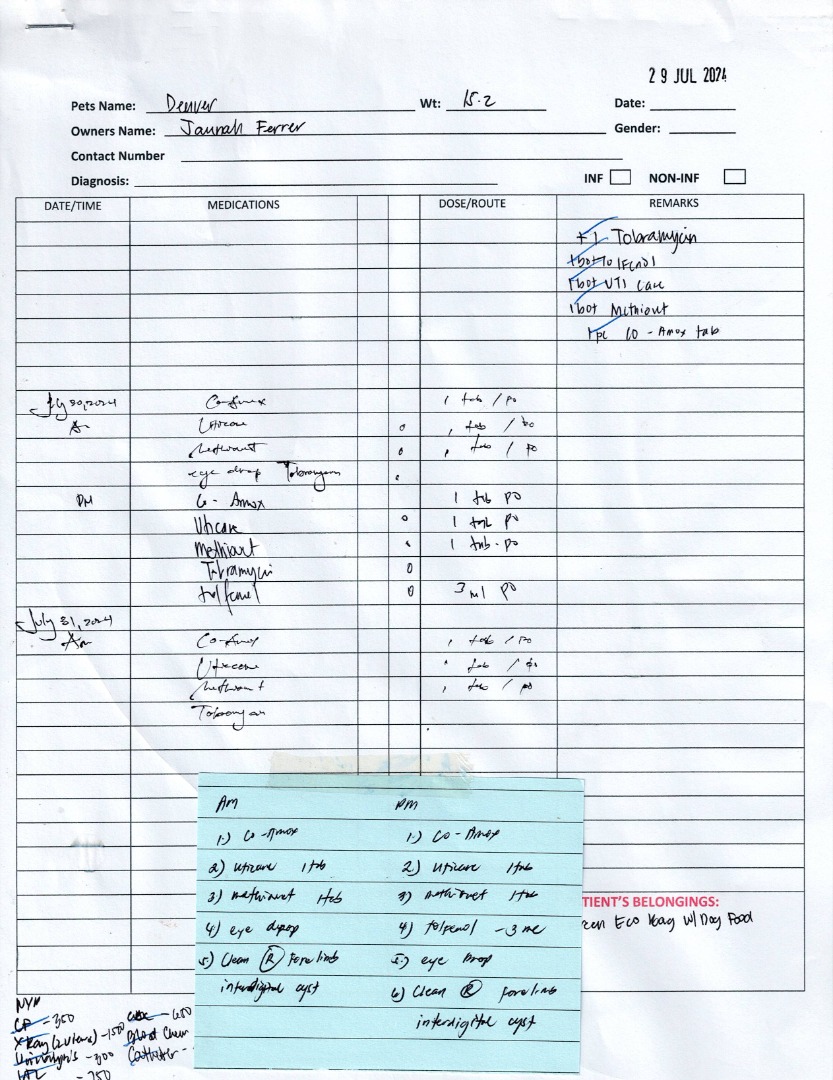 29 JUL 2024
Pets Name: Denver Wt: 15.2 Date:
Owners Name: Jaunah Ferrer Gender:
Contact Number
Diagnosis: INF NON-INF
DATE/TIME MEDICATIONS DOSE/ROUTE REMARKS
+1 Tobramycin
1bot Tolfenol
1bot UTI Care
1bot Methiovet
1pc Co-Amox tab
July 30, 2024 Co-Amox 1 tab / po
Am Uticare 1 tab / po
Methiovet 1 tab / po
eye drop Tobramycin
PM Co-Amox 1 tab po
Uticare 1 tab po
Methiovet 1 tab - po
Tobramycin
tolfenol 3 ml po
July 31, 2024
Am Co-Amox 1 tab / po
Uticare 1 tab / po
Methiovet 1 tab / po
Tobramycin
Am PM
1.) Co-Amox 1.) Co-Amox
2) Uticare 1tab 2.) Uticare 1tab
3) methiovet 1tab 3) methiovet 1tab
4) eye drop 4) tolfenol - 3 ml
5.) Clean R Forelimb 5.) eye drop
interdigital cyst 6) Clean R forelimb
interdigital cyst
TIENT'S BELONGINGS:
Eco Bag w/ Dog Food
- 350 CBC - 650
X Ray (2 views) - 1500 Blood Chem
- 300 Catheter -
- 750